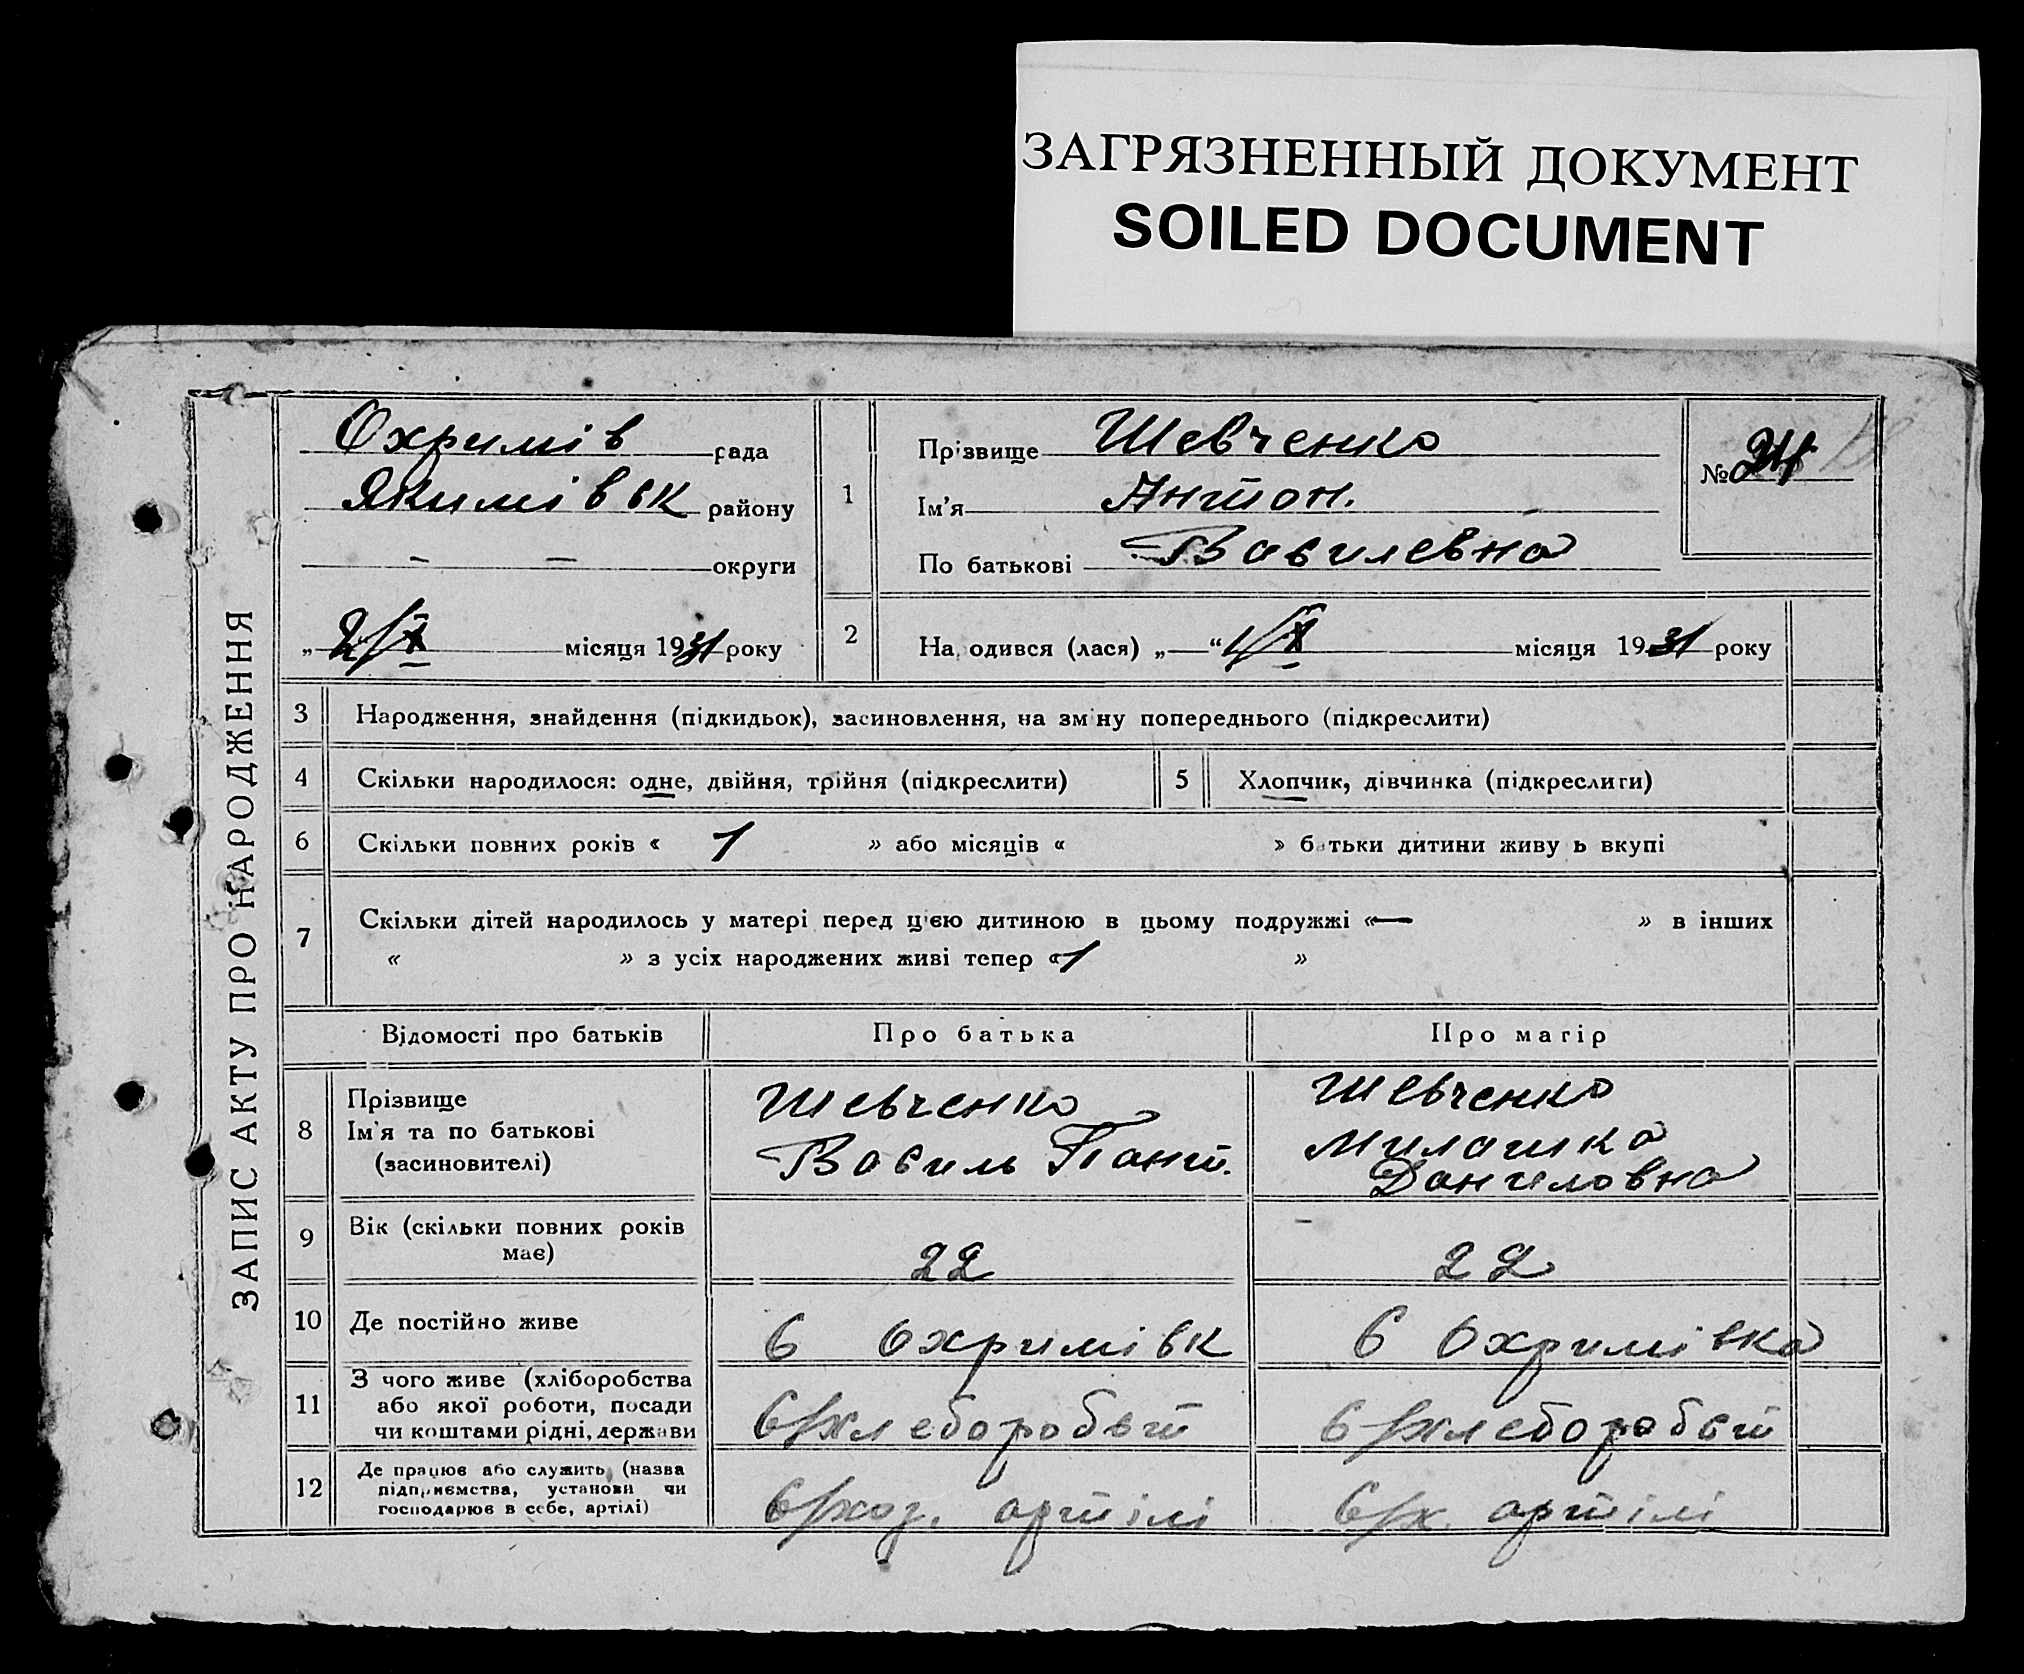 ЗАГРЯЗНЕННЫЙ ДОКУМЕНТ
SOILED DOCUMENT
ЗАПИС АКТУ ПРО НАРОДЖЕННЯ
Охримів рада
Якимівськ району
— — округи
„ 2/X місяця 1931 року
1
Прізвище Шевченко
Ім'я Антон.
По батькові Василевна
№ 24
2 На одився (лася) „ “ 1/X місяця 1931 року
3 Народження, знайдення (підкидьок), засиновлення, на зміну попереднього (підкреслити)
4 Скільки народилося: одне, двійня, трійня (підкреслити) 5 Хлопчик, дівчинка (підкреслиги)
6 Скільки повних років « 1 » або місяців « » батьки дитини живу ь вкупі
7 Скільки дітей народилось у матері перед цією дитиною в цьому подружжі «— » в інших
« » з усіх народжених живі тепер «1 »
Відомості про батьків Про батька Про матір
8
Прізвище
Ім'я та по батькові
(засиновителі)
Шевченко
Василь Пант.
Шевченко
Милашка
Даниловна
9 Вік (скільки повних років
має)
22 22
10 Де постійно живе с Охримівк с Охримівка
11
З чого живе (хліборобства
або якої роботи, посади
чи коштами рідні, держави
с/хлеборобст с/хлеборобст
12
Де працює або служить (назва
підприємства, установи чи
господарює в себе, артілі)
с/хоз. артілі с/х. артілі